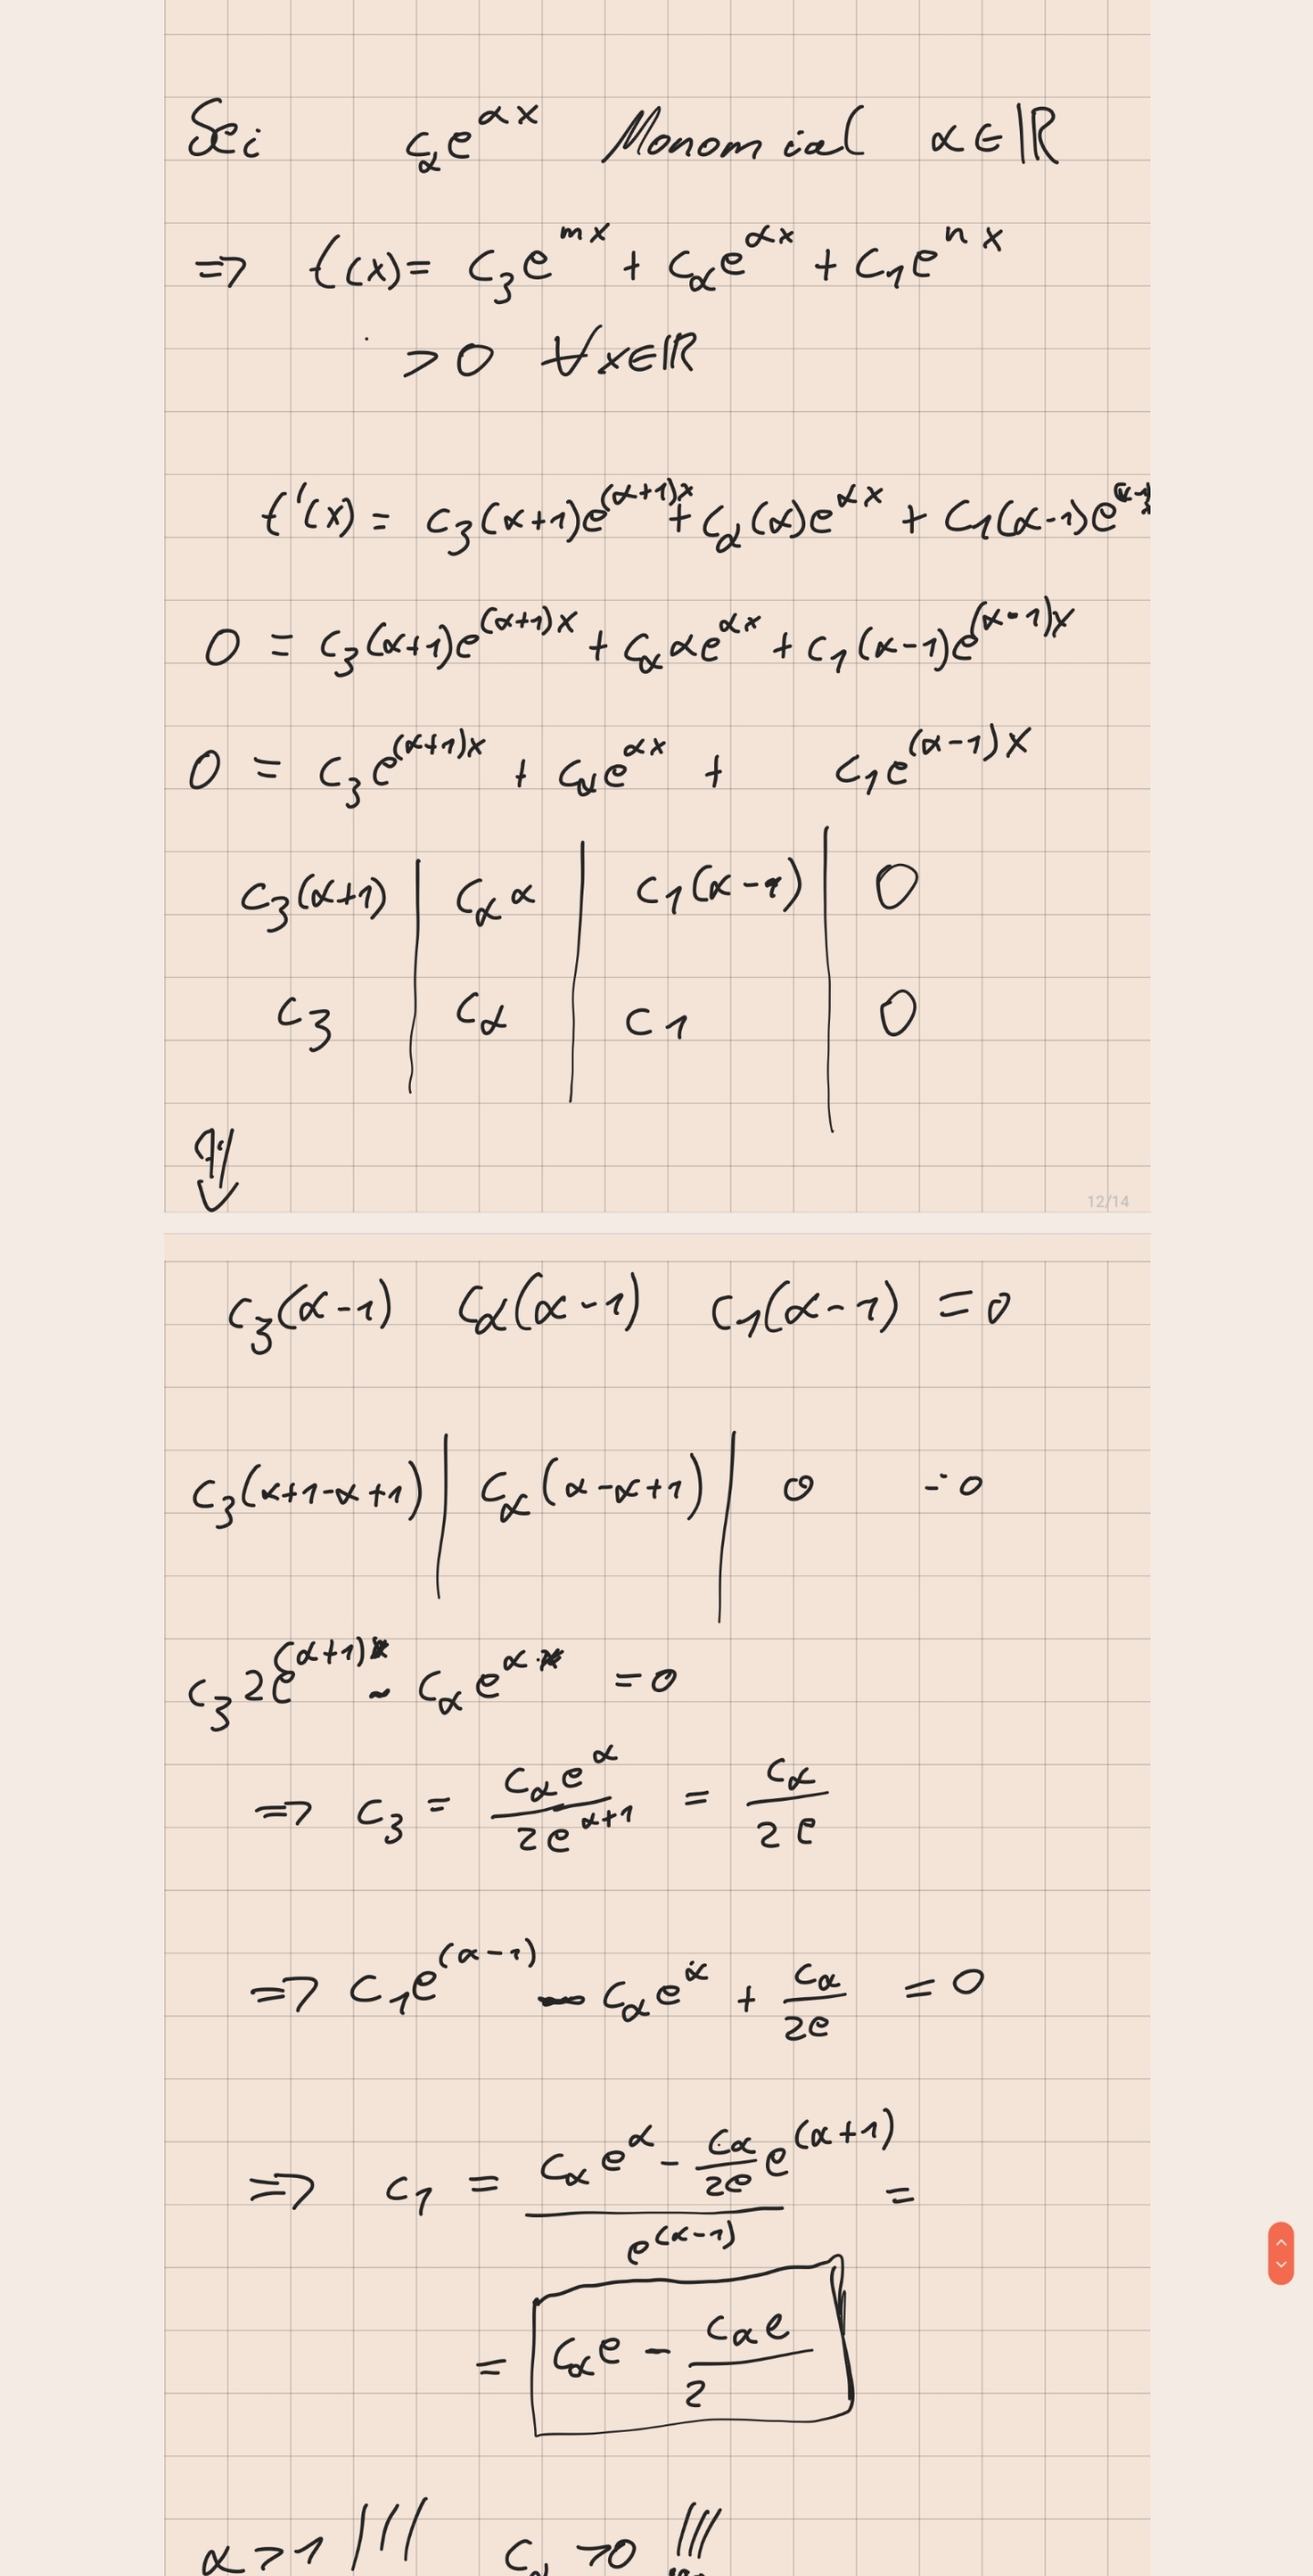 Sei c_α e^{αx} Monomial α∈ℝ
=> f(x) = c_3 e^{mx} + c_α e^{αx} + c_1 e^{nx}
> 0 ∀x∈ℝ
f'(x) = c_3(α+1)e^{(α+1)x} + c_α(α)e^{αx} + c_1(α-1)e^{(α-1)
0 = c_3(α+1)e^{(α+1)x} + c_α αe^{αx} + c_1(α-1)e^{(α-1)x}
0 = c_3 e^{(α+1)x} + c_α e^{αx} + c_1 e^{(α-1)x}
c_3(α+1) | c_α α | c_1(α-1) | 0
c_3 | c_α | c_1 | 0
12/14
c_3(α-1) c_α(α-1) c_1(α-1) = 0
c_3(α+1-α+1) | c_α(α-α+1) | 0 = 0
c_3 2e^{(α+1)} - c_α e^{α} = 0
=> c_3 = \frac{c_α e^α}{2e^{α+1}} = \frac{c_α}{2e}
=> c_1 e^{(α-1)} - c_α e^α + \frac{c_α}{2e} = 0
=> c_1 = \frac{c_α e^α - \frac{c_α}{2e} e^{(α+1)}}{e^{(α-1)}} =
= c_α e - \frac{c_α e}{2}
α > 1 !!! c_α > 0 !!!